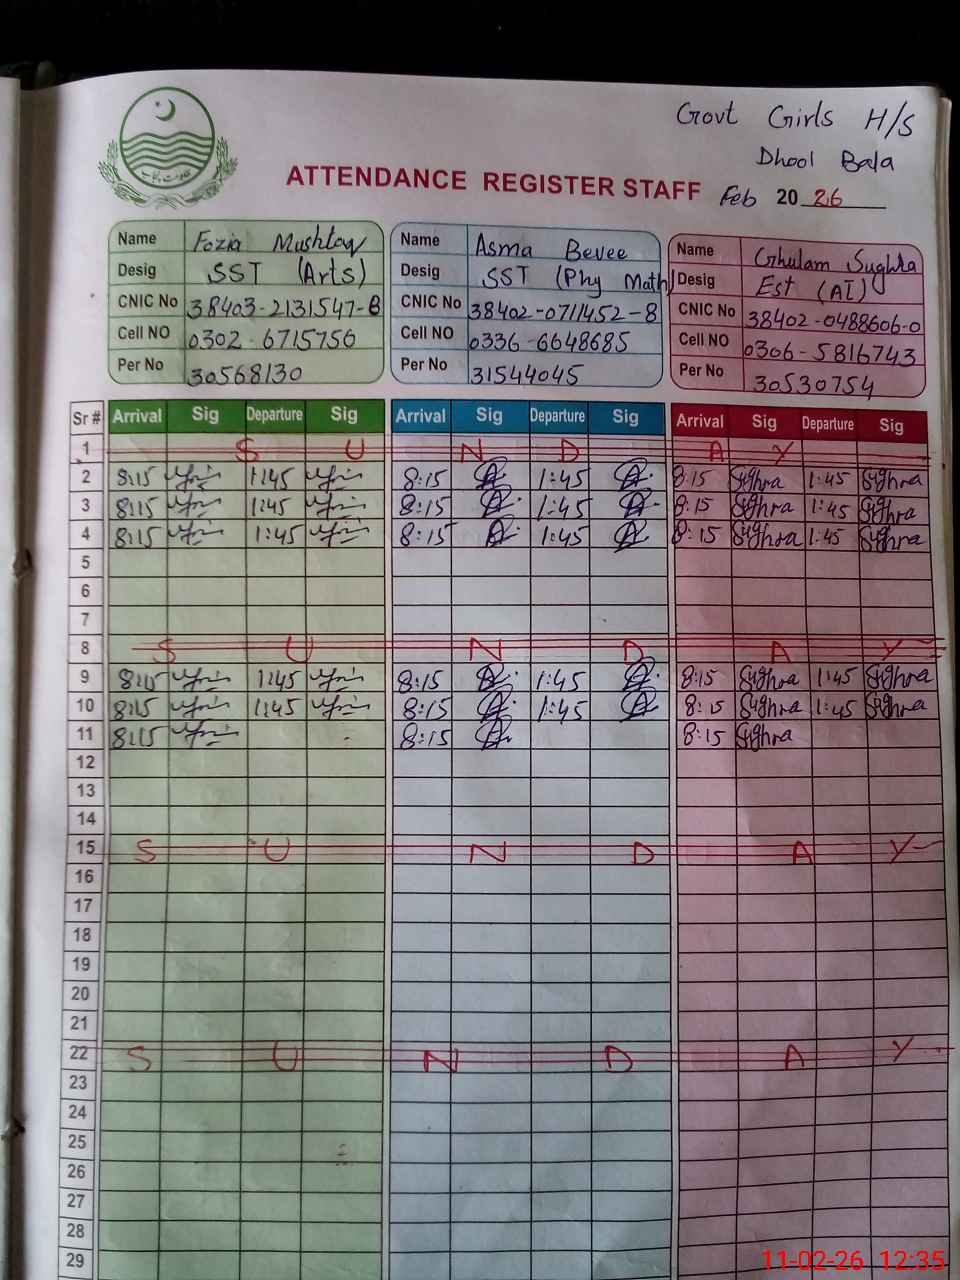 Govt Girls H/S
Dhool Bala
ATTENDANCE REGISTER STAFF Feb 20 26
Name Fozia Mushtaq
Desig SST (Arts)
CNIC No 38403-2131547-8
Cell NO 0302-6715756
Per No 30568130
Name Asma Bevee
Desig SST (Phy Math)
CNIC No 38402-0711452-8
Cell NO 0336-6648685
Per No 31544045
Name Ghulam Sughra
Desig Est (AI)
CNIC No 38402-0488606-0
Cell NO 0306-5816743
Per No 30530754
Sr # Arrival Sig Departure Sig Arrival Sig Departure Sig Arrival Sig Departure Sig
1 S U N D A Y
2 8:15 1:45 8:15 1:45 8:15 Sughra 1:45 Sughra
3 8:15 1:45 8:15 1:45 8:15 Sughra 1:45 Sughra
4 8:15 1:45 8:15 1:45 8:15 Sughra 1:45 Sughra
5
6
7
8 S U N D A Y
9 8:15 1:45 8:15 1:45 8:15 Sughra 1:45 Sughra
10 8:15 1:45 8:15 1:45 8:15 Sughra 1:45 Sughra
11 8:15 8:15 8:15 Sughra
12
13
14
15 S U N D A Y
16
17
18
19
20
21
22 S U N D A Y
23
24
25
26
27
28
29
11-02-26 12:35